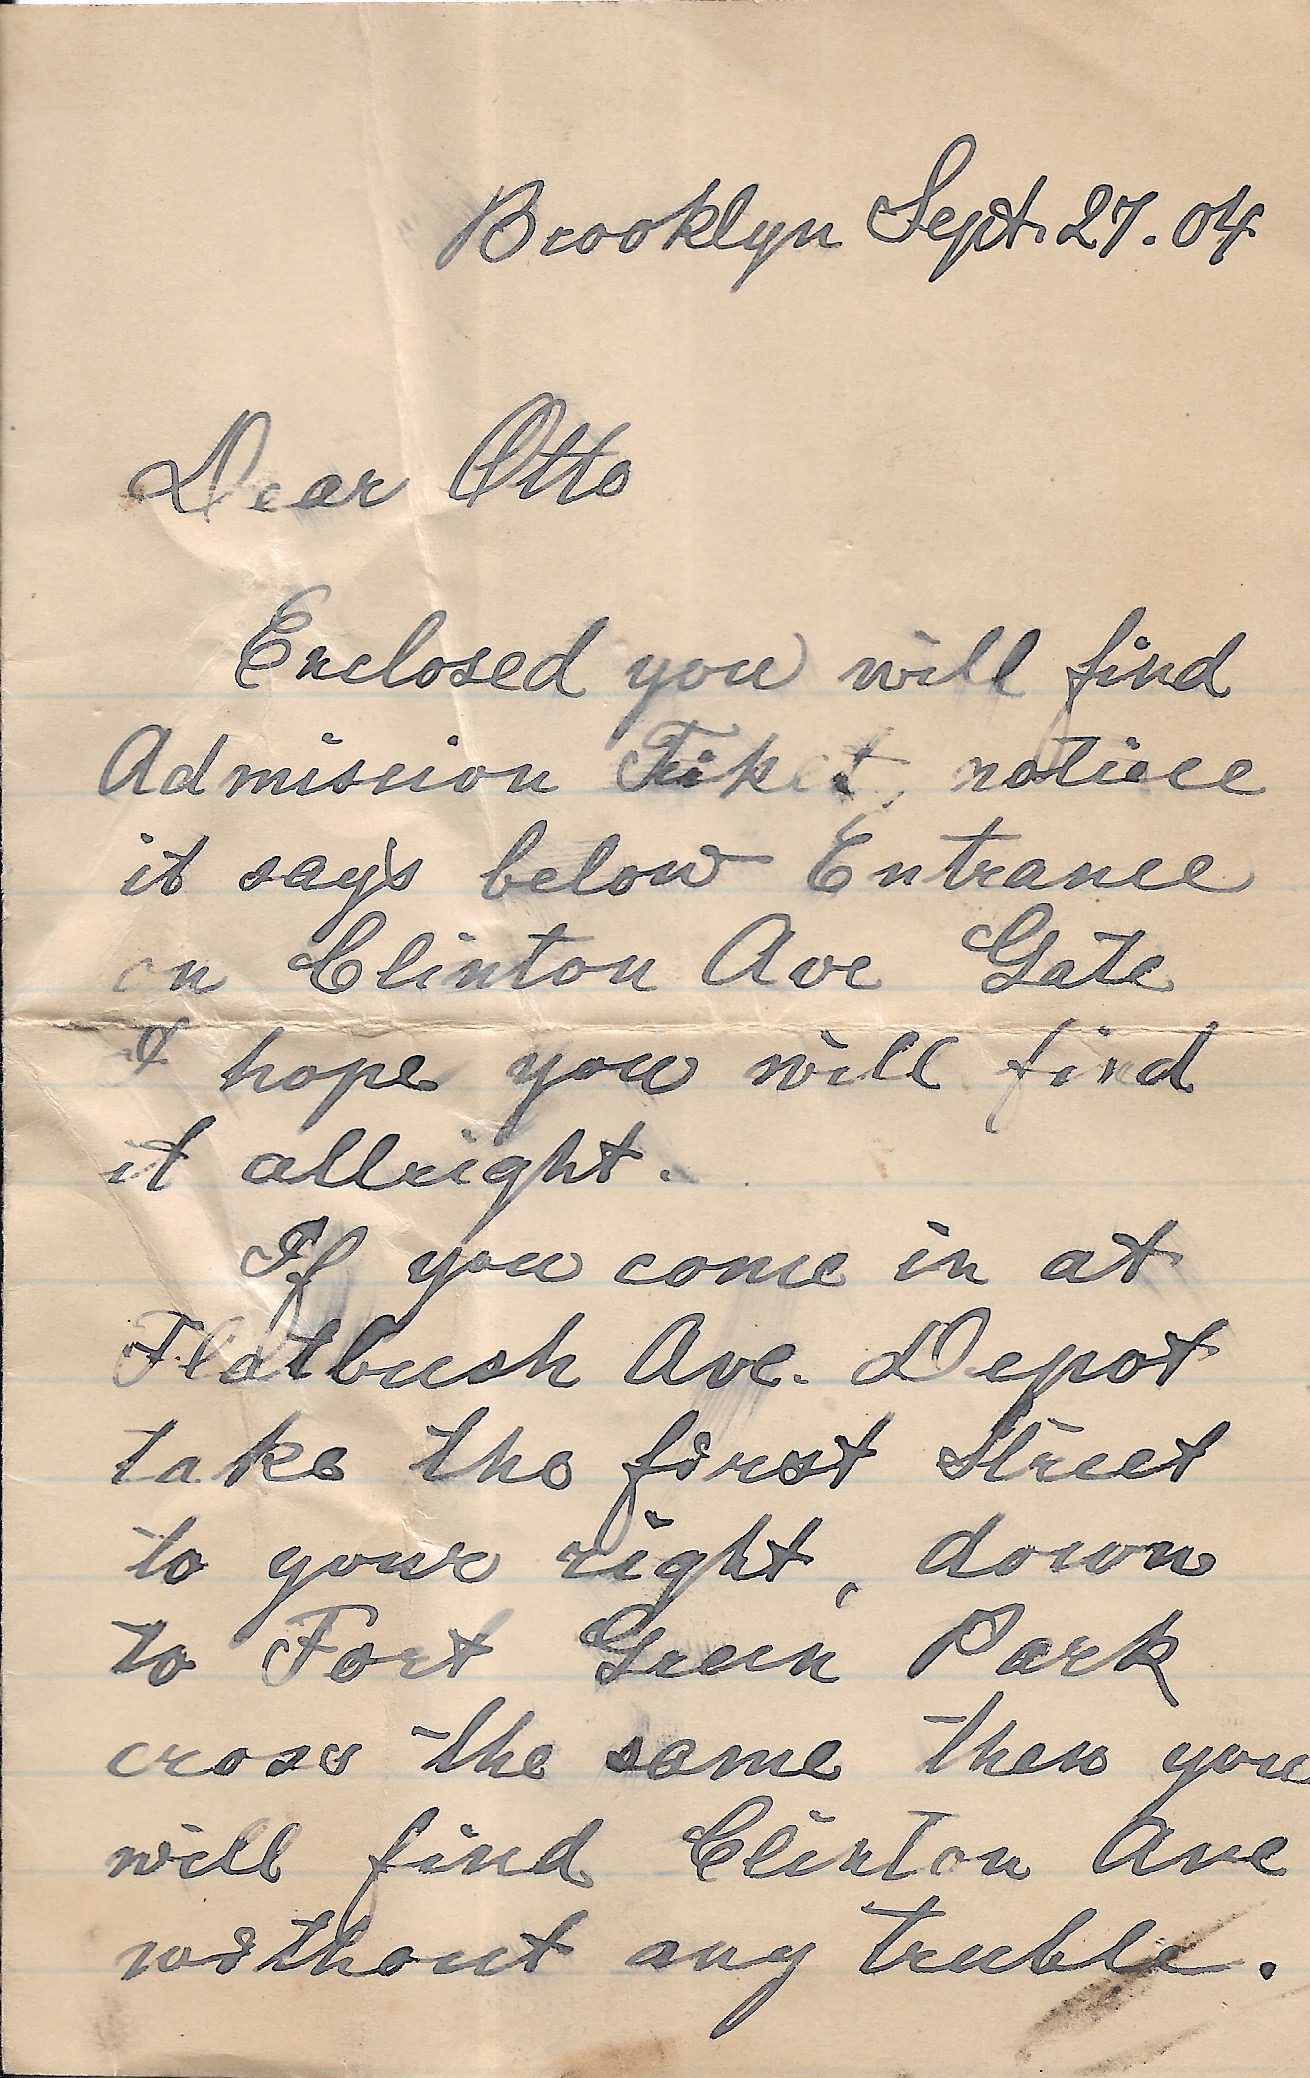 Brooklyn Sept. 27. 04.
Dear Otto
Enclosed you will find
Admission Tiket, notiece
it says below Entrance
on Clinton Ave Gate
I hope you will find
it allright.
If you come in at
Flatbush Ave. Depot
take the first Street
to your right, down
to Fort Green Park
cross the same then you
will find Clinton Ave
without any truble.